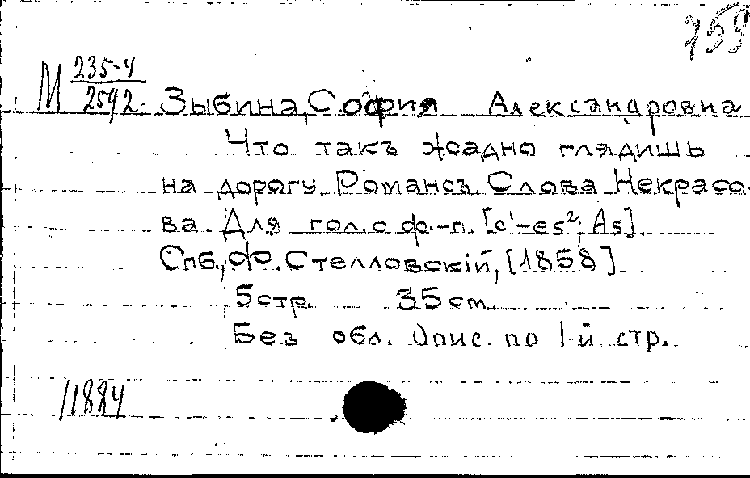 759
М 235-4
2592
Зыбина, София Александровна
Что такъ жадно глядишь
на дорогу Романсъ Слова Некрасо-
ва Для гол. с ф.-п. [c¹-es²; As]
Спб., Ф. Стелловскій, [1858]
5 стр. 35 см.
Без обл. Опис. по 1-й стр.
11884